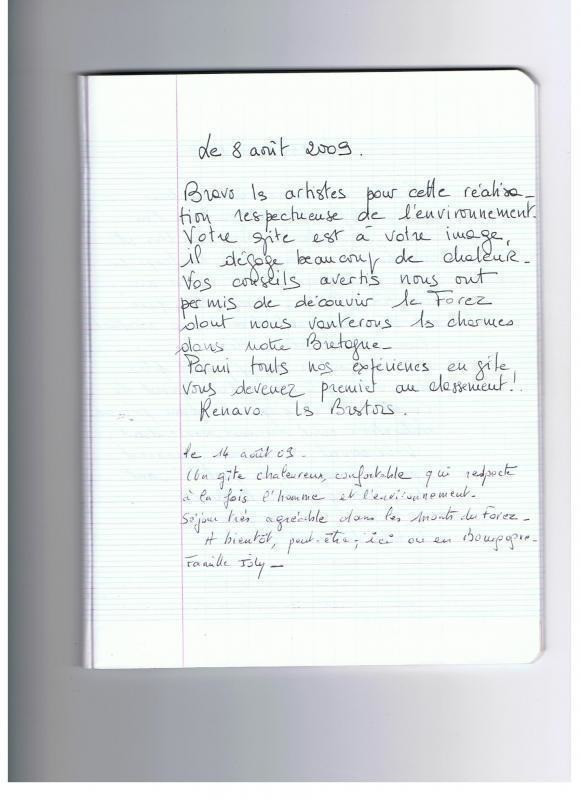 Le 8 août 2009.
Bravo les artistes pour cette réalisa-
tion respectueuse de l'environnement.
Votre gîte est à votre image,
il dégage beaucoup de chaleur.
Vos conseils avertis nous ont
permis de découvrir le Forez
dont nous vanterons les charmes
dans notre Bretagne.
Parmi toutes nos expériences en gîte,
vous devenez premier au classement!
Kenavo les
le 14 août 09.
Un gîte chaleureux, confortable qui respecte
à la fois l'homme et l'environnement.
Séjour très agréable dans les Monts du Forez.
A bientôt, peut-être, ici ou en Bourgogne.
Famille Joly